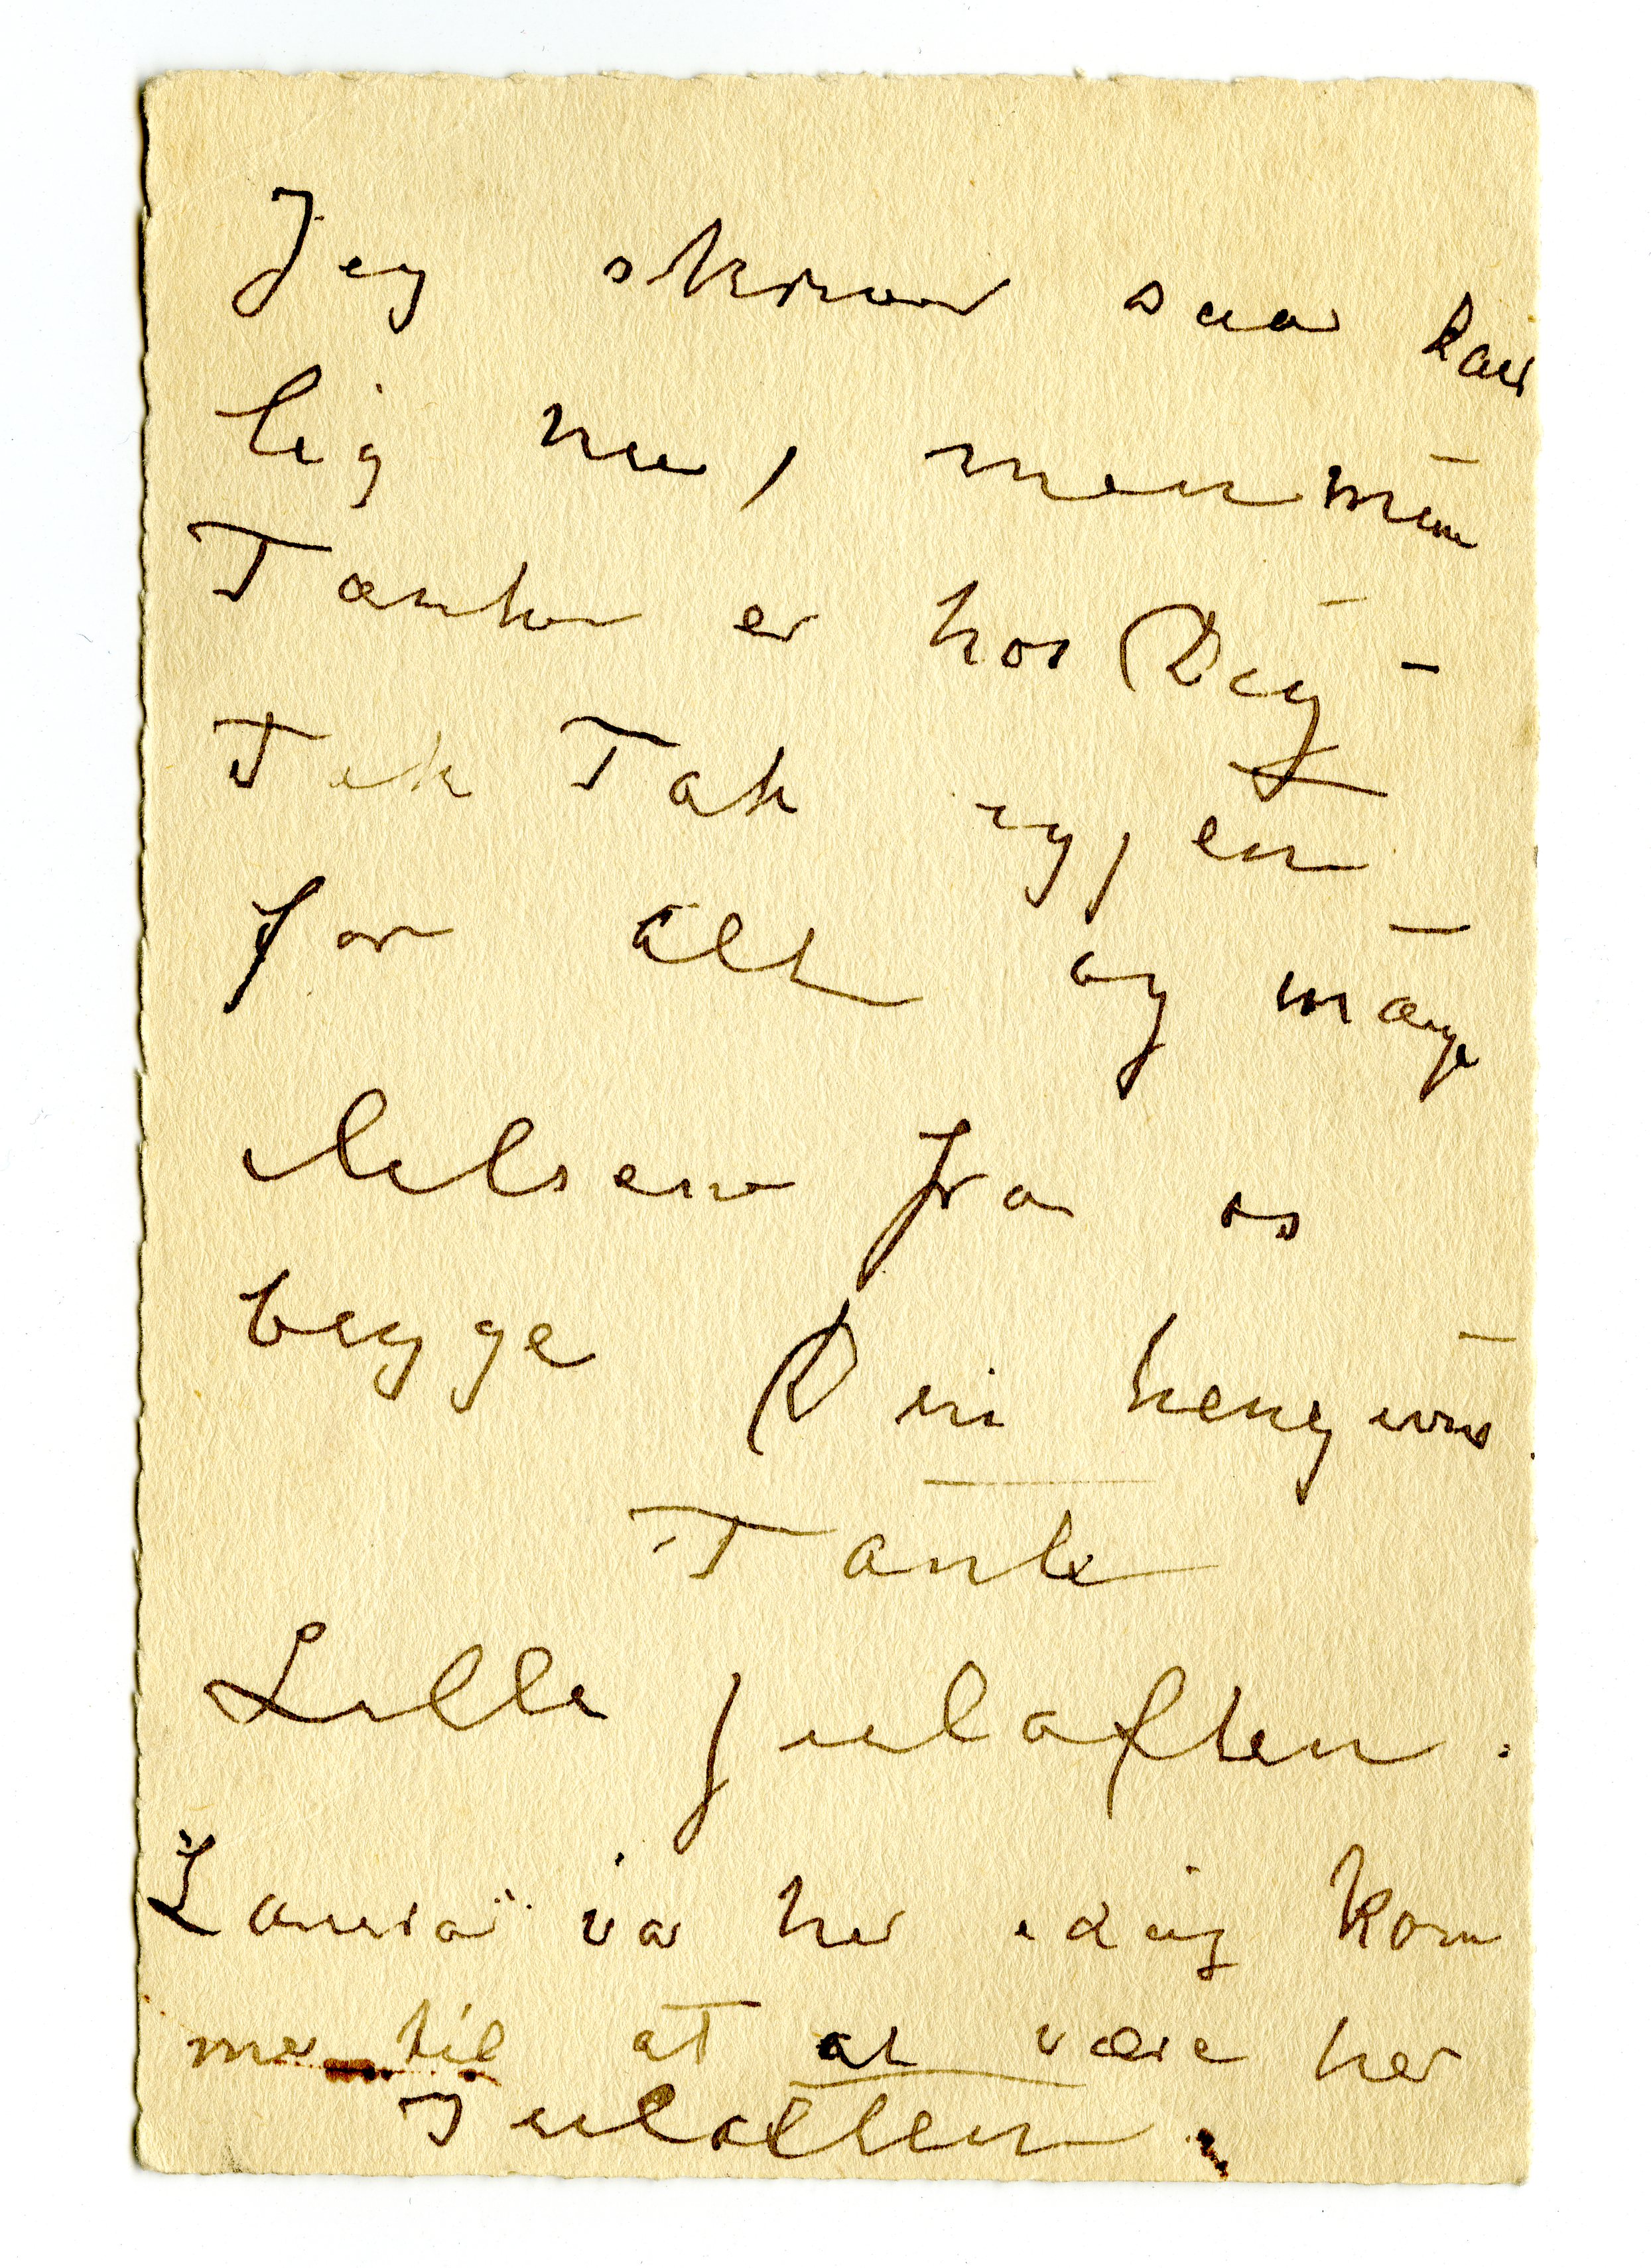 Jeg skriver saa daar
lig nu, men mine
Tanker er hos Dig –
Tak Tak igjen
for alt og mange
hilsener fra os
begge Din hengivne
Tante
Lille juleaften.
Laura var her idag kom
mer til at at være her
Juleaften.